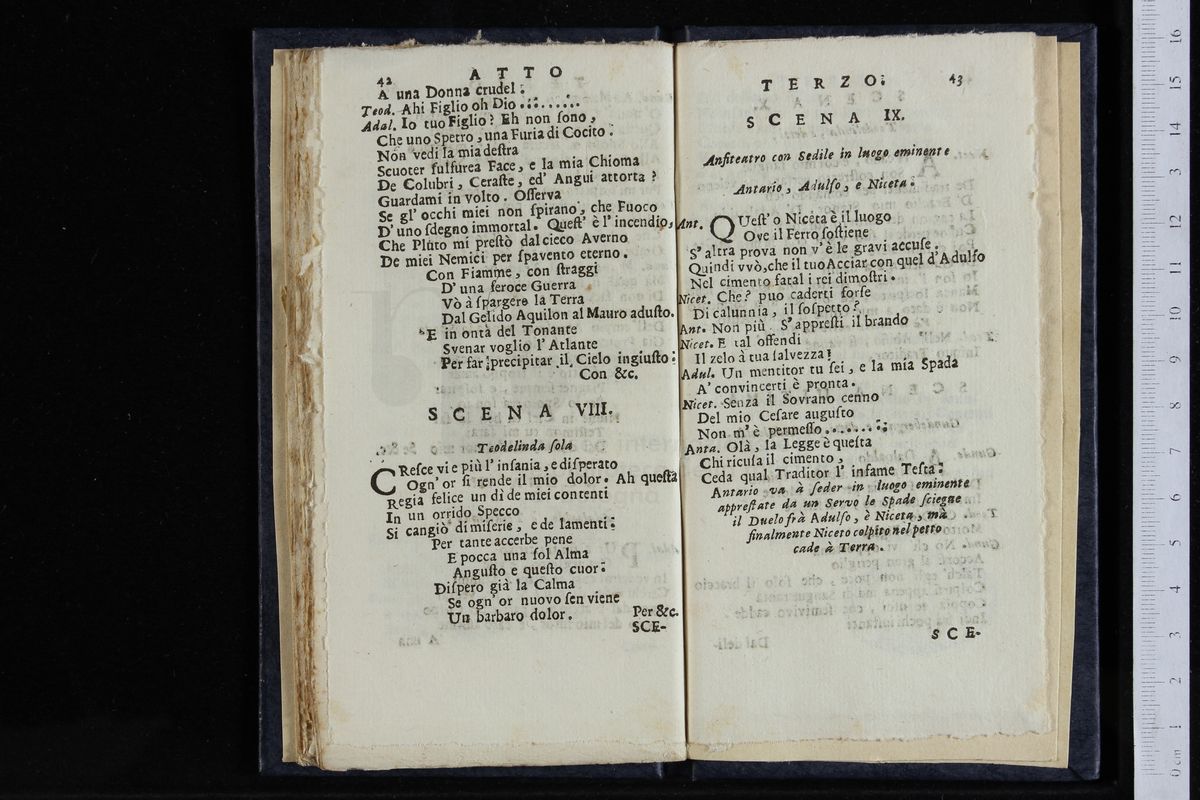 42
ATTO
A una Donna crudel:
Teod. Ahi Figlio oh Dio .........
Adal. Io tuo Figlio? Eh non ſono,
Che uno Spetro, una Furia di Cocito.
Non vedi la mia deſtra
Scuoter ſulfurea Face, e la mia Chioma
De Colubri, Ceraſte, ed' Angui attorta?
Guardami in volto. Oſſerva
Se gl' occhi miei non ſpirano, che Fuoco
D' uno ſdegno immortal. Queſt' è l' incendio,
Che Pluto mi preſtò dal cieco Averno
De miei Nemici per ſpavento eterno.
Con Fiamme, con ſtraggi
D' una feroce Guerra
Vò à ſpargere la Terra
Dal Gelido Aquilon al Mauro aduſto.
E in ontà del Tonante
Svenar voglio l' Atlante
Per far precipitar il Cielo ingiuſto:
Con &c.
SCENA VIII.
Teodelinda ſola
CReſce vie più l' inſania, e diſperato
Ogn' or ſi rende il mio dolor. Ah queſta
Regia felice un dì de miei contenti
In un orrido Specco
Si cangiò di miſerie, e de lamenti:
Per tante accerbe pene
E pocca una ſol Alma
Anguſto e queſto cuor:
Diſpero già la Calma
Se ogn' or nuovo ſen viene
Un barbaro dolor. Per &c.
SCE-
TERZO: 43
SCENA IX.
Anfiteatro con Sedile in luogo eminente
Antario, Adulfo, e Niceta:
Ant. QUeſt' o Niceta è il luogo
Ove il Ferro ſoſtiene
S' altra prova non v' è le gravi accuſe.
Quindi vvò, che il tuo Acciar con quel d' Adulfo
Nel cimento fatal i rei dimoſtri.
Nicet. Che? puo caderti forſe
Di calunnia, il ſoſpetto?
Ant. Non più. S' appreſti il brando
Nicet. E tal offendi
Il zelo à tua ſalvezza!
Adul. Un mentitor tu ſei, e la mia Spada
A' convincerti è pronta.
Nicet. Senza il Sovrano cenno
Del mio Ceſare auguſto
Non m' è permeſſo ........
Anta. Olà, la Legge è queſta
Chi ricuſa il cimento,
Ceda qual Traditor l' infame Teſta:
Antario va à ſeder in luogo eminente
appreſtate da un Servo le Spade ſciegne
il Duelo frà Adulfo, è Niceta, mà
finalmente Niceto colpito nel petto
cade à Terra.
SCE-